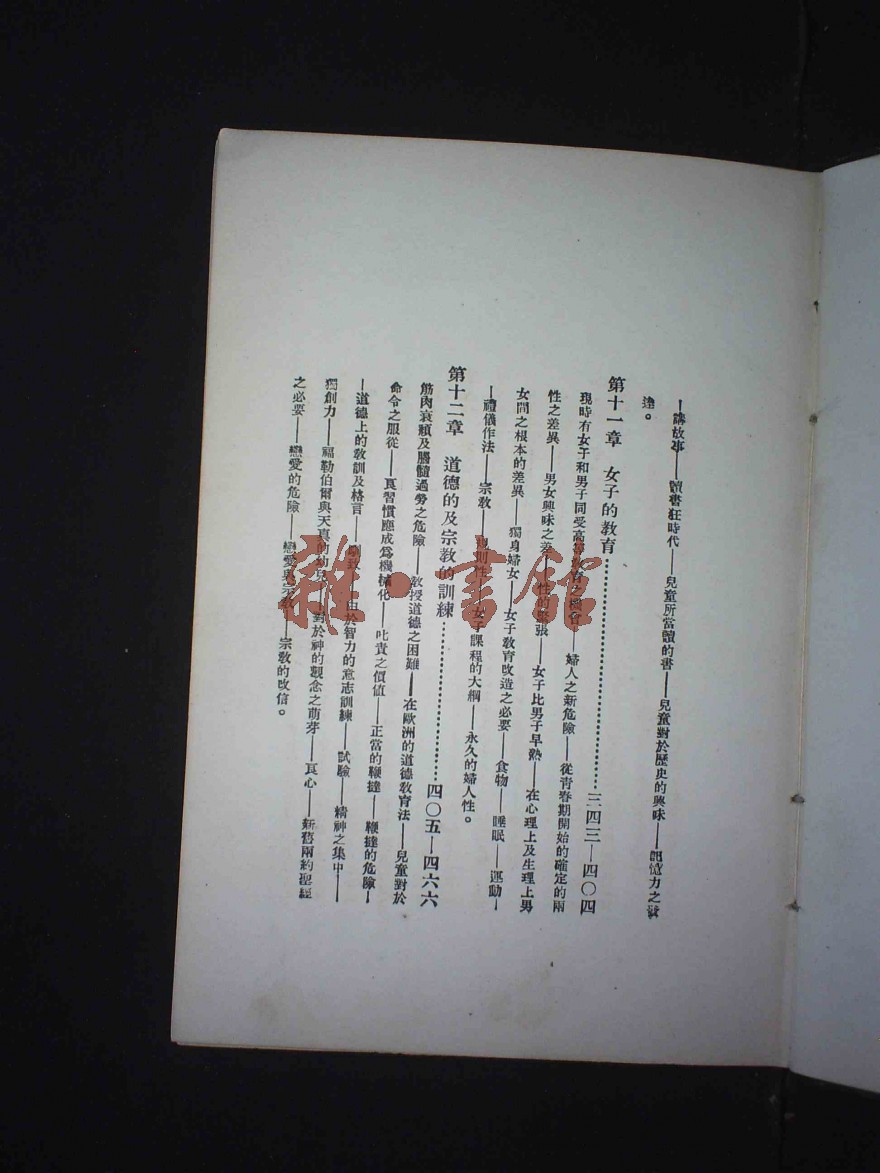 —講故事——讀書狂時代——兒童所當讀的書——兒童對於歷史的興味——記憶力之發
達。
第十一章 女子的教育…………………三四三—四〇四
現時有女子和男子同受高等教育之機會——婦人之新危險——從青春期開始的確定的兩
性之差異——男女興味之差——性的緊張——女子比男子早熟——在心理上及生理上男
女間之根本的差異——獨身婦女——女子教育改造之必要——食物——睡眠——運動—
—禮儀作法——宗教——規則性——女子課程的大綱——永久的婦人性。
第十二章 道德的及宗教的訓練…………………四〇五—四六六
筋肉衰頹及腦髓過勞之危險——教授道德之困難——在歐洲的道德教育法——兒童對於
命令之服從——良習慣應成為機械化——叱責之價值——正當的鞭撻——鞭撻的危險—
—道德上的教訓及格言——由於智力的意志訓練——試驗——精神之集中——
獨創力——福勒伯爾與天真的幼兒——對於神的觀念之萌芽——良心——新舊兩約聖經
之必要——戀愛的危險——戀愛與宗教——宗教的改信。
雜·書館